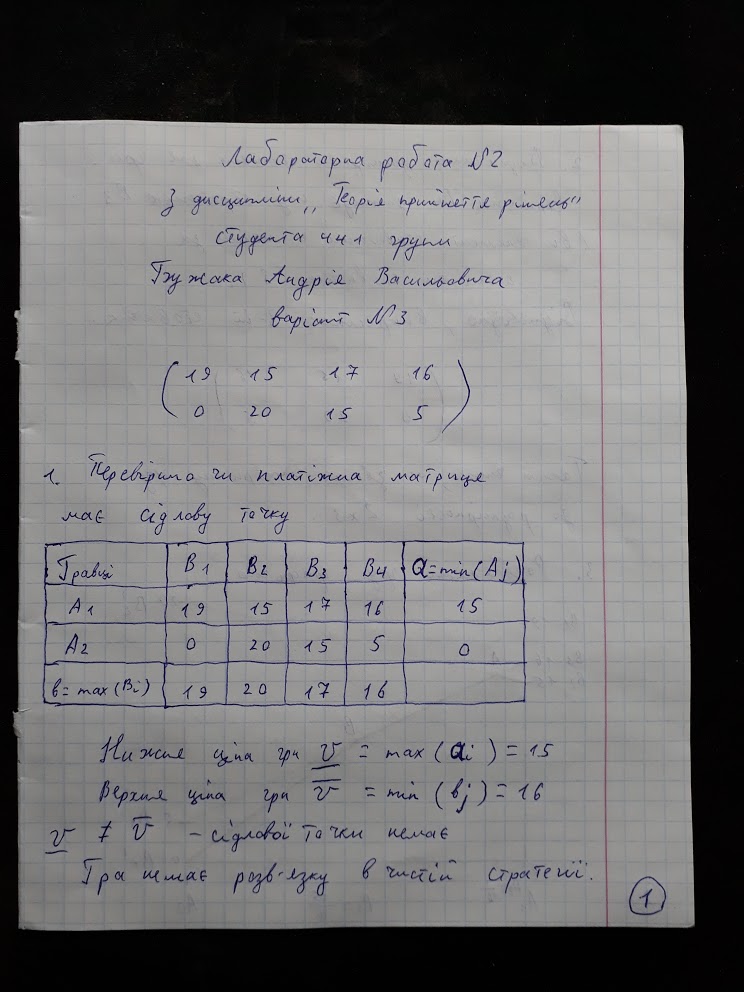 Лабораторна робота №2
З дисципліни „Теорія прийняття рішень"
студента 441 групи
Андрія Васильовича
варіант №3
19 15 17 16
0 20 15 5
1. Перевіримо чи платіжна матриця
має сідлову точку
Гравці B1 B2 B3 B4 a=min(Aj)
A1 19 15 17 16 15
A2 0 20 15 5 0
b=max(Bi) 19 20 17 16
Нижня ціна гри v = max(ai) = 15
Верхня ціна гри v̅ = min (bj) = 16
v ≠ v̅ - сідлової точки немає
Гра немає розв'язку в чистій стратегії.
1